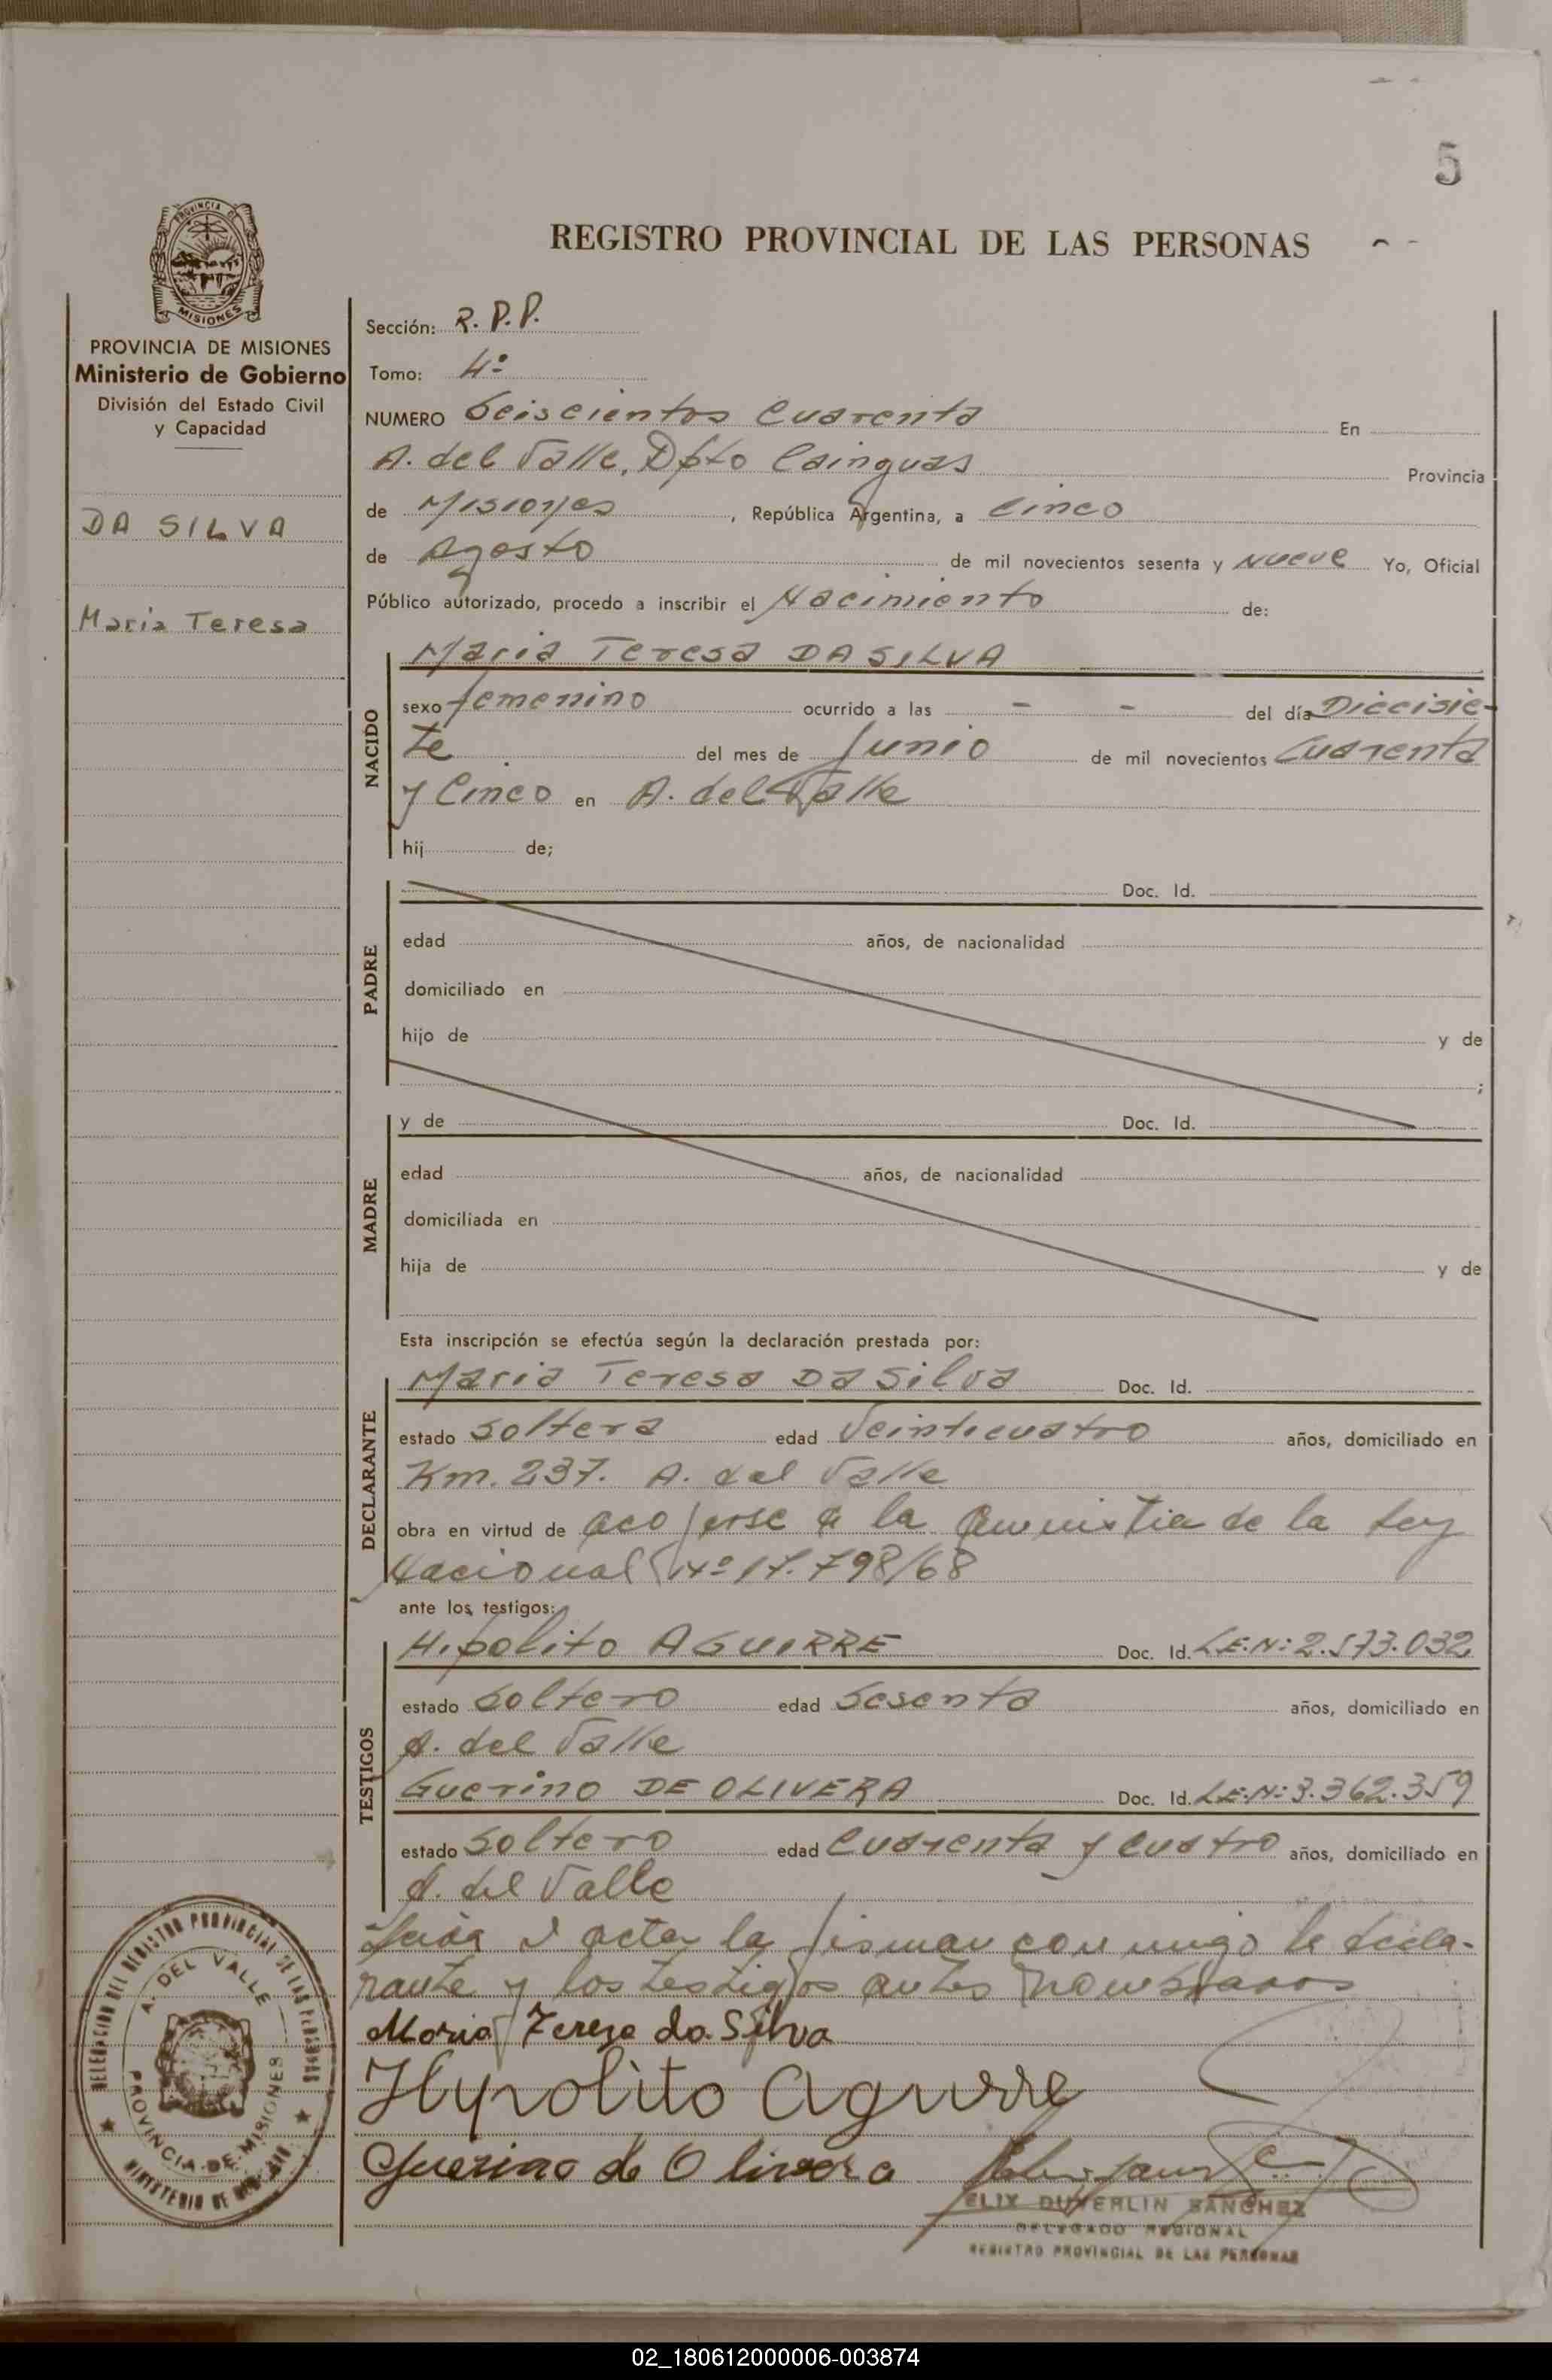 5
REGISTRO PROVINCIAL DE LAS PERSONAS
PROVINCIA DE
MISIONES
PROVINCIA DE MISIONES
Ministerio de Gobierno
División del Estado Civil
y Capacidad
DA SILVA
Maria Teresa
Sección: R. P. P.
Tomo: 4º
NUMERO Seiscientos Cuarenta En
A. del Valle, Dpto Cainguas Provincia
de Misiones, República Argentina, a Cinco
de Agosto de mil novecientos sesenta y Nueve Yo, Oficial
Público autorizado, procedo a inscribir el Nacimiento de:
Maria Teresa DA SILVA
NACIDO
sexo femenino ocurrido a las - - del día Diecisie-
te del mes de Junio de mil novecientos Cuarenta
y Cinco en A. del Valle
hij de;
PADRE
Doc. Id.
edad años, de nacionalidad
domiciliado en
hijo de y de
;
MADRE
y de Doc. Id.
edad años, de nacionalidad
domiciliada en
hija de y de
Esta inscripción se efectúa según la declaración prestada por:
DECLARANTE
Maria Teresa Da Silva Doc. Id.
estado soltera edad Veinticuatro años, domiciliado en
Km. 237. A. del Valle
obra en virtud de acojerse a la Amnistia de la Ley
Nacional Nº 17.798/68
ante los testigos:
TESTIGOS
Hipolito AGUIRRE Doc. Id. L.E.N: 2.573.032
estado Soltero edad Sesenta años, domiciliado en
A. del Valle
Guerino DE OLIVERA Doc. Id. L.E.N: 3.362.359
estado Soltero edad Cuarenta y Cuatro años, domiciliado en
A. del Valle
acta la firman conmigo la decla-
rante y los testigos antes
Maria Teresa da Silva
Hypolito Aguirre
Guerino de Olivera
DELEGACION DEL REGISTRO PROVINCIAL DE LAS PERSONAS
A. DEL VALLE
PROVINCIA DE MISIONES
MINISTERIO DE
SANCHEZ
DELEGADO REGIONAL
REGISTRO PROVINCIAL DE LAS PERSONAS
02_180612000006-003874